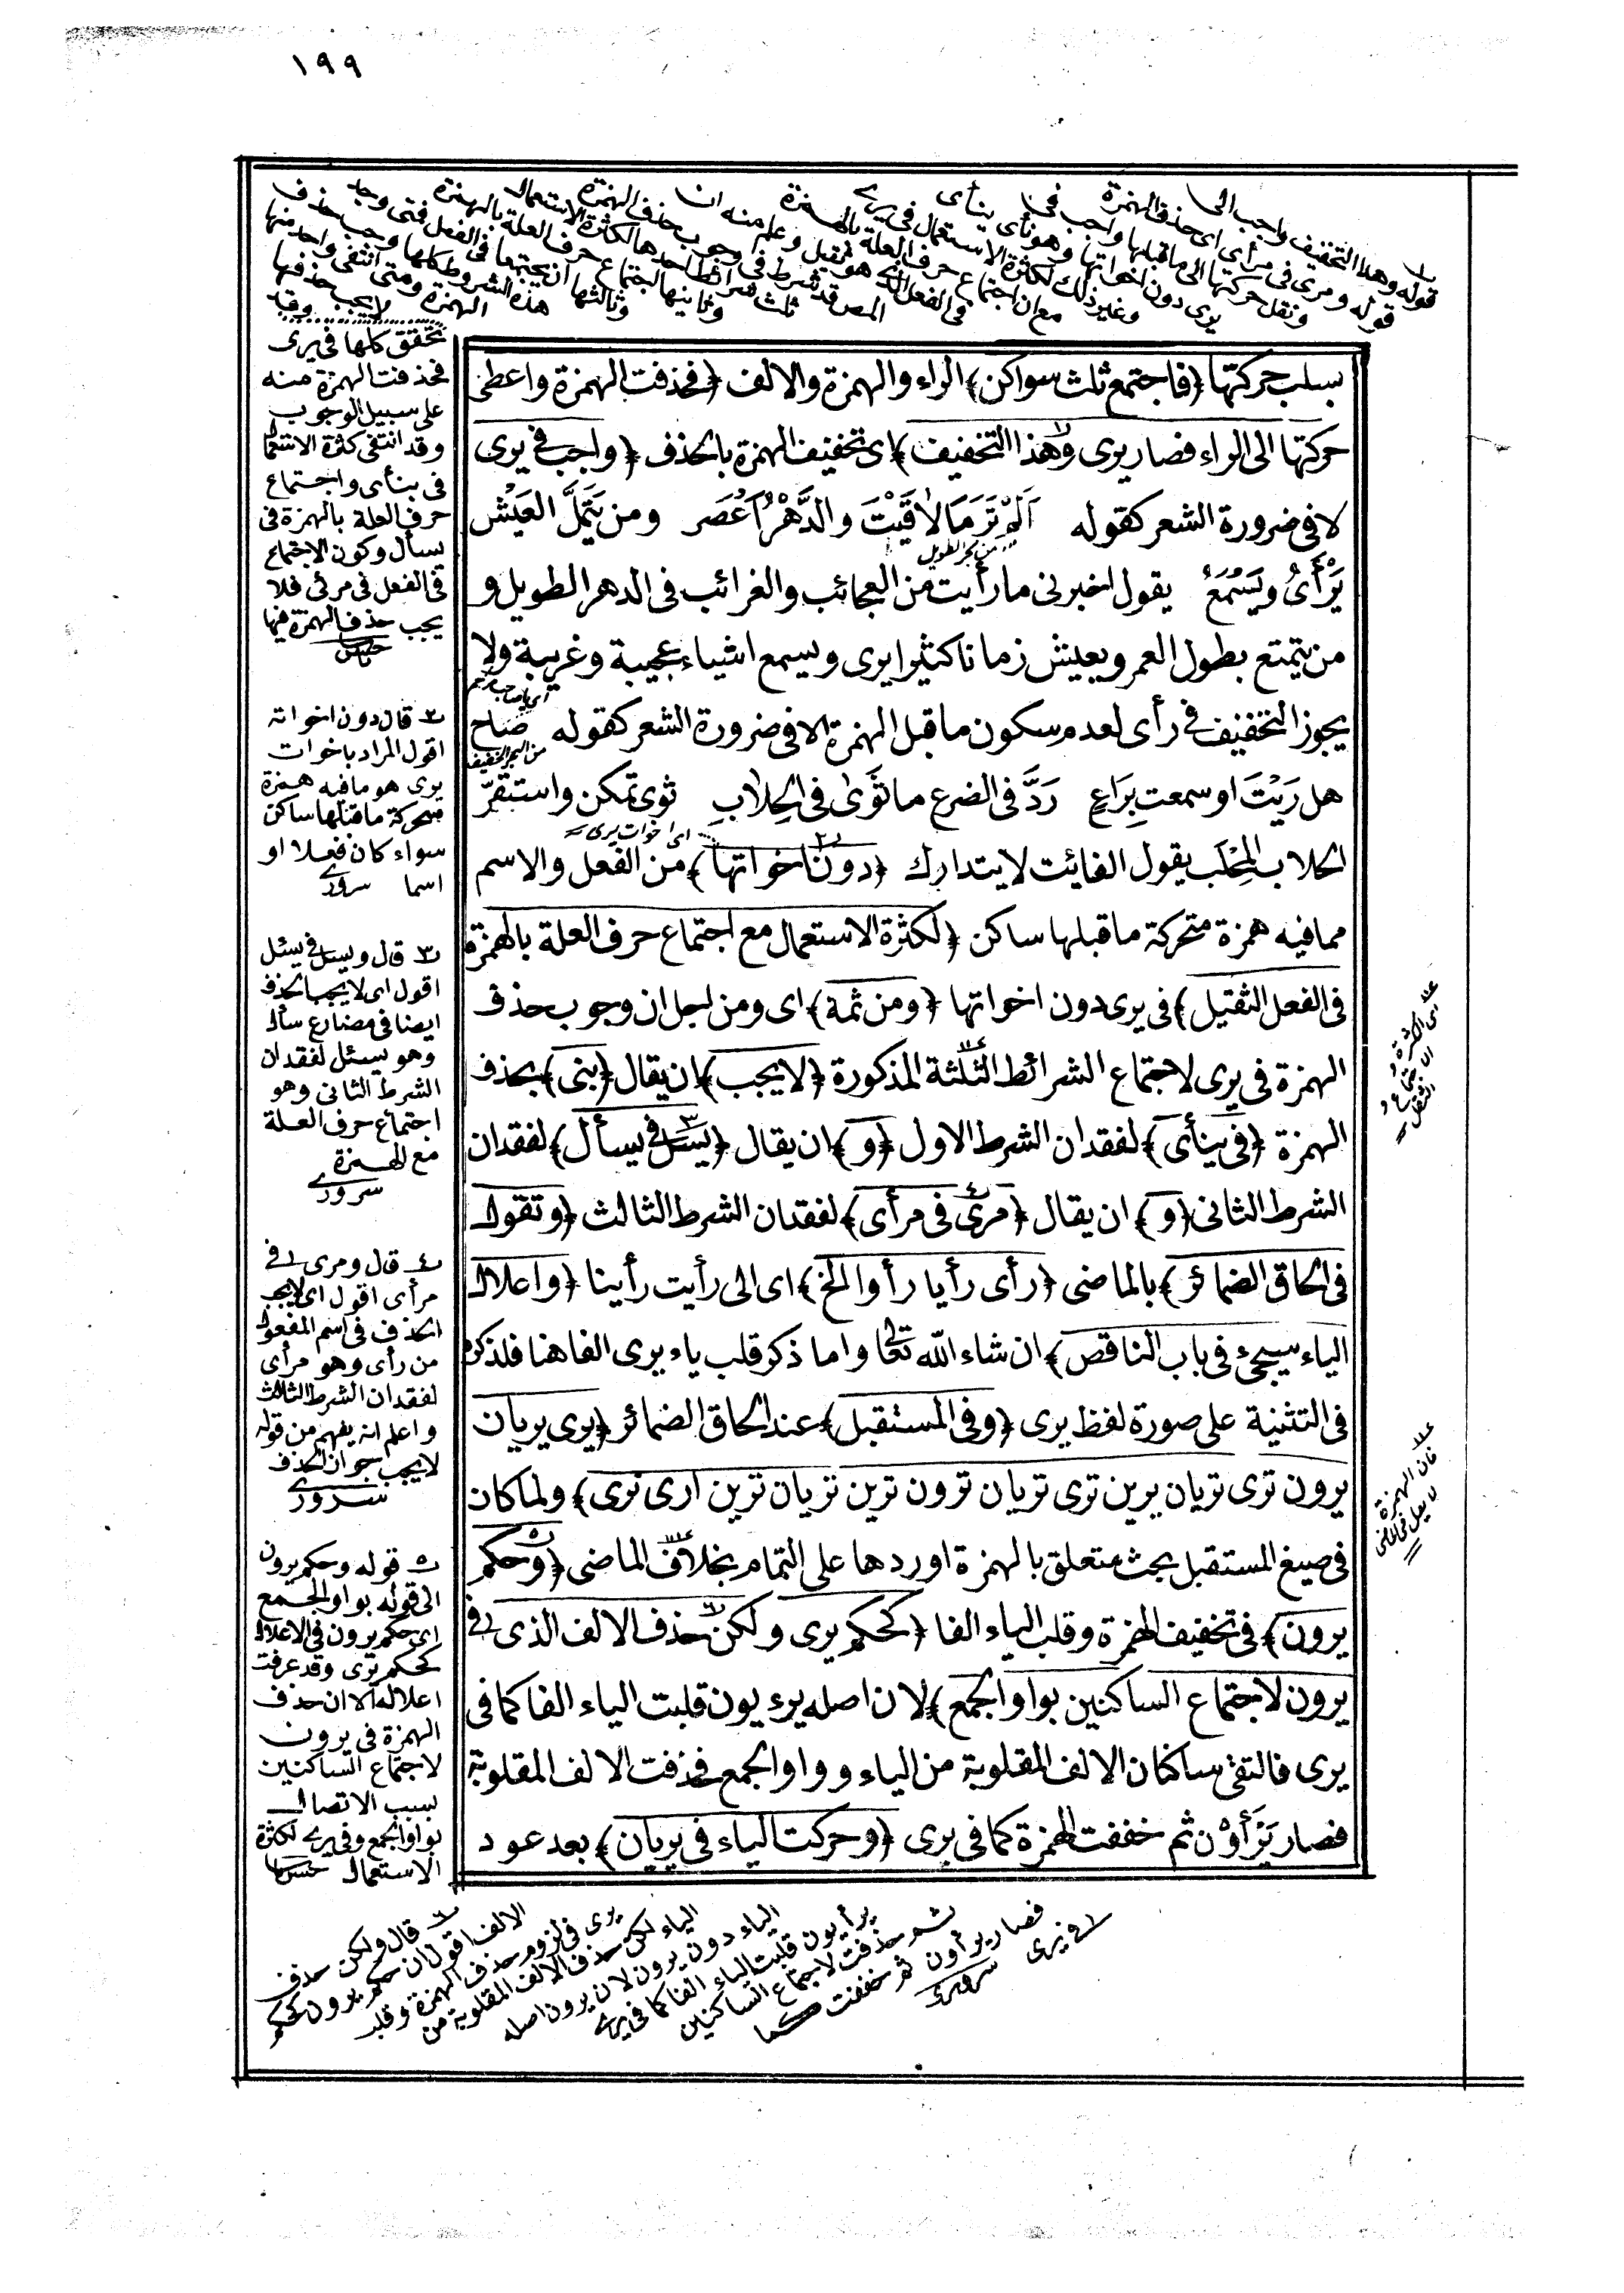 ١٩٩
قوله وهذا التخفيف واجب الى
قوله ومرى فى مرأى اى حذف الهمزة
ونقل حركتها الى ماقبلها واجب فى
يرى دون اخواتها وهو نأى ينأى
وغير ذلك لكثرة الاستعمال فى يرى
مع ان اجتماع حرف العلة بالهمزة
فى الفعل الذى هو ثقيل وعلم منه ان
المص قد شرط فى وجوب حذف الهمزة
ثلث شرائط احدها لكثرة الاستعمال
وثانيها اجتماع حرف العلة بالهمزة
وثالثها ان يجتمعا فى الفعل فمتى وجد
هذه الشروط كلها وجب حذف
الهمزة ومتى انتفى واحد منها
لايجب حذفها وقد
تحقق كلها فى يرى
فحذفت الهمزة منه
على سبيل الوجوب
وقد انتفى كثرة الاستعمال
فى ينأى واجتماع
حرف العلة بالهمزة فى
يسأل وكون الاجتماع
فى الفعل فى مرئى فلا
يجب حذف الهمزة فيها
بسلب حركتها ﴿فاجتمع ثلث سواكن﴾ الراء والهمزة والالف ﴿فحذفت الهمزة واعطى
حركتها الى الراء فصار يرى وهذا التخفيف﴾ اى تخفيف الهمزة بالحذف ﴿واجب فى يرى
لا فى ضرورة الشعر كقوله اَلَمْ تَرَ مَا لَاقَيْتَ وَالدَّهْرُ اَعْصُر ومن يَتَمَلَّ العَيْش
من بحر الطويل
يَرْأَىُ ويَسْمَعُ يقول اخبرنى ما رأيت من العجائب والغرائب فى الدهر الطويل و
من يتمتع بطول العمر ويعيش زمانا كثيرا يرى ويسمع اشياء عجيبة وغريبة ولا
يجوز التخفيف فى رأى لعدم سكون ماقبل الهمزة الا فى ضرورة الشعر كقوله صَاح
من البحر الخفيف
هل رَيْتَ او سمعتِ بِرَاعٍ رَدَّ فى الضرع ما ثَوَى فى الحِلابِ ثوى تمكن واستقرّ
اى اخوات يرى
الحلاب المِحْلَب يقول الفائت لايتدارك ﴿دون اخواتها﴾ من الفعل والاسم
مما فيه همزة متحركة ماقبلها ساكن ﴿لكثرة الاستعمال مع اجتماع حرف العلة بالهمزة
فى الفعل الثقيل﴾ فى يرى دون اخواتها ﴿ومن ثمة﴾ اى ومن اجل ان وجوب حذف
الهمزة فى يرى لاجتماع الشرائط الثلثة المذكورة ﴿لايجب﴾ ان يقال ﴿ينى﴾ بحذف
الهمزة ﴿فى ينأى﴾ لفقدان الشرط الاول ﴿و﴾ ان يقال ﴿يَسَل فى يسأل﴾ لفقدان
الشرط الثانى ﴿و﴾ ان يقال ﴿مرى فى مرأى﴾ لفقدان الشرط الثالث ﴿وتقول
فى الحاق الضمائر﴾ بالماضى ﴿رأى رأيا رأوا الخ﴾ اى الى رأيت رأينا ﴿واعلال
الياء سيجئ فى باب الناقص﴾ ان شاء الله تعالى واما ذكر قلب ياء يرى الفا هنا فلذكره
فى التثنية على صورة لفظ يرى ﴿وفى المستقبل﴾ عند الحاق الضمائر ﴿يرى يريان
يرون ترى تريان يرين ترى تريان ترون ترين تريان ترين ارى نرى﴾ ولما كان
فى صيغ المستقبل بحث متعلق بالهمزة اوردها على التمام بخلاف الماضى ﴿وحكم
يرون﴾ فى تخفيف الهمزة وقلب الياء الفا ﴿كحكم يرى ولكن حذف الالف الذى فى
يرون لاجتماع الساكنين بواو الجمع﴾ لان اصله يرءيون قلبت الياء الفا كما فى
يرى فالتقى ساكنان الالف المقلوبة من الياء وواو الجمع فحذفت الالف المقلوبة
فصار يَرْأَوْن ثم خففت الهمزة كما فى يرى ﴿وحركت الياء فى يريان﴾ بعد عود
٢ قال دون اخواته
اقول المراد باخوات
يرى هو ما فيه همزة
متحركة ماقبلها ساكن
سواء كان فعلا او
اسما سرورى
٣ قال ويسل فى يسئل
اقول اى لايجب الحذف
ايضا فى مضارع سأل
وهو يسئل لفقدان
الشرط الثانى وهو
اجتماع حرف العلة
مع الهمزة
سرورى
٤ قال ومرى فى
مرأى اقول اى لايجب
الحذف فى اسم المفعول
من رأى وهو مرأى
لفقدان الشرط الثالث
واعلم انه يفهم من قوله
لايجب جواز الحذف
سرورى
٥ قوله وحكم يرون
الى قوله بواو الجمع
اى حكم يرون فى الاعلال
كحكم يرى وقد عرفت
اعلاله الا ان حذف
الهمزة فى يرون
لاجتماع الساكنين
بسبب الاتصال
بواو الجمع وفى يرى لكثرة
الاستعمال
اى الكثرة و
الاجتماع و
الثقل
فان الهمزة
لا يعل فى الماضى
٦ قال ولكن حذف
الالف اقول ان حكم يرون كحكم
يرى فى لزوم حذف الهمزة وقلب
الياء لكن حذف الالف المقلوبة من
الياء دون يرون لان يرون اصله
يرأيون قلبت الياء الفا كما فى يرى
ثم حذفت لاجتماع الساكنين
فصار يرأون ثم خففت كما
فى يرى سرورى